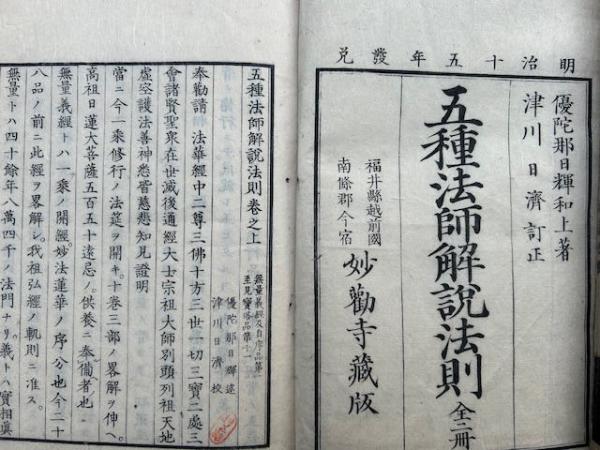 明治十五年發兌
優陀那日輝和上著
津川日濟訂正
五種法師解說法則 全二冊
福井縣越前國
南條郡今宿
妙勸寺藏版
五種法師解說法則卷之上
無量義經及自序品第一
至見寶塔品第十一
優陀那日輝述
津川日濟校
奉勸請 法華經中二尊三佛十方三世一切三寶二處三
會諸賢聖衆在世滅後通經大士宗祖大師別頭列祖天地
虛空護法善神悉皆慈悲知見證明
當ニ今一乘修行ノ法筵ヲ開キ。十卷三部ノ畧解ヲ伸ヘ。
高祖日蓮大菩薩五百五十遠忌ノ。供養ニ奉備者也
無量義經トハ一乘ノ開經。妙法蓮華ノ序分也今二十
八品ノ前ニ此經ヲ畧解シ。我祖弘經ノ軌則ニ准ス。
無量トハ四十餘年八萬四千ノ法門ナリ。義トハ實相眞